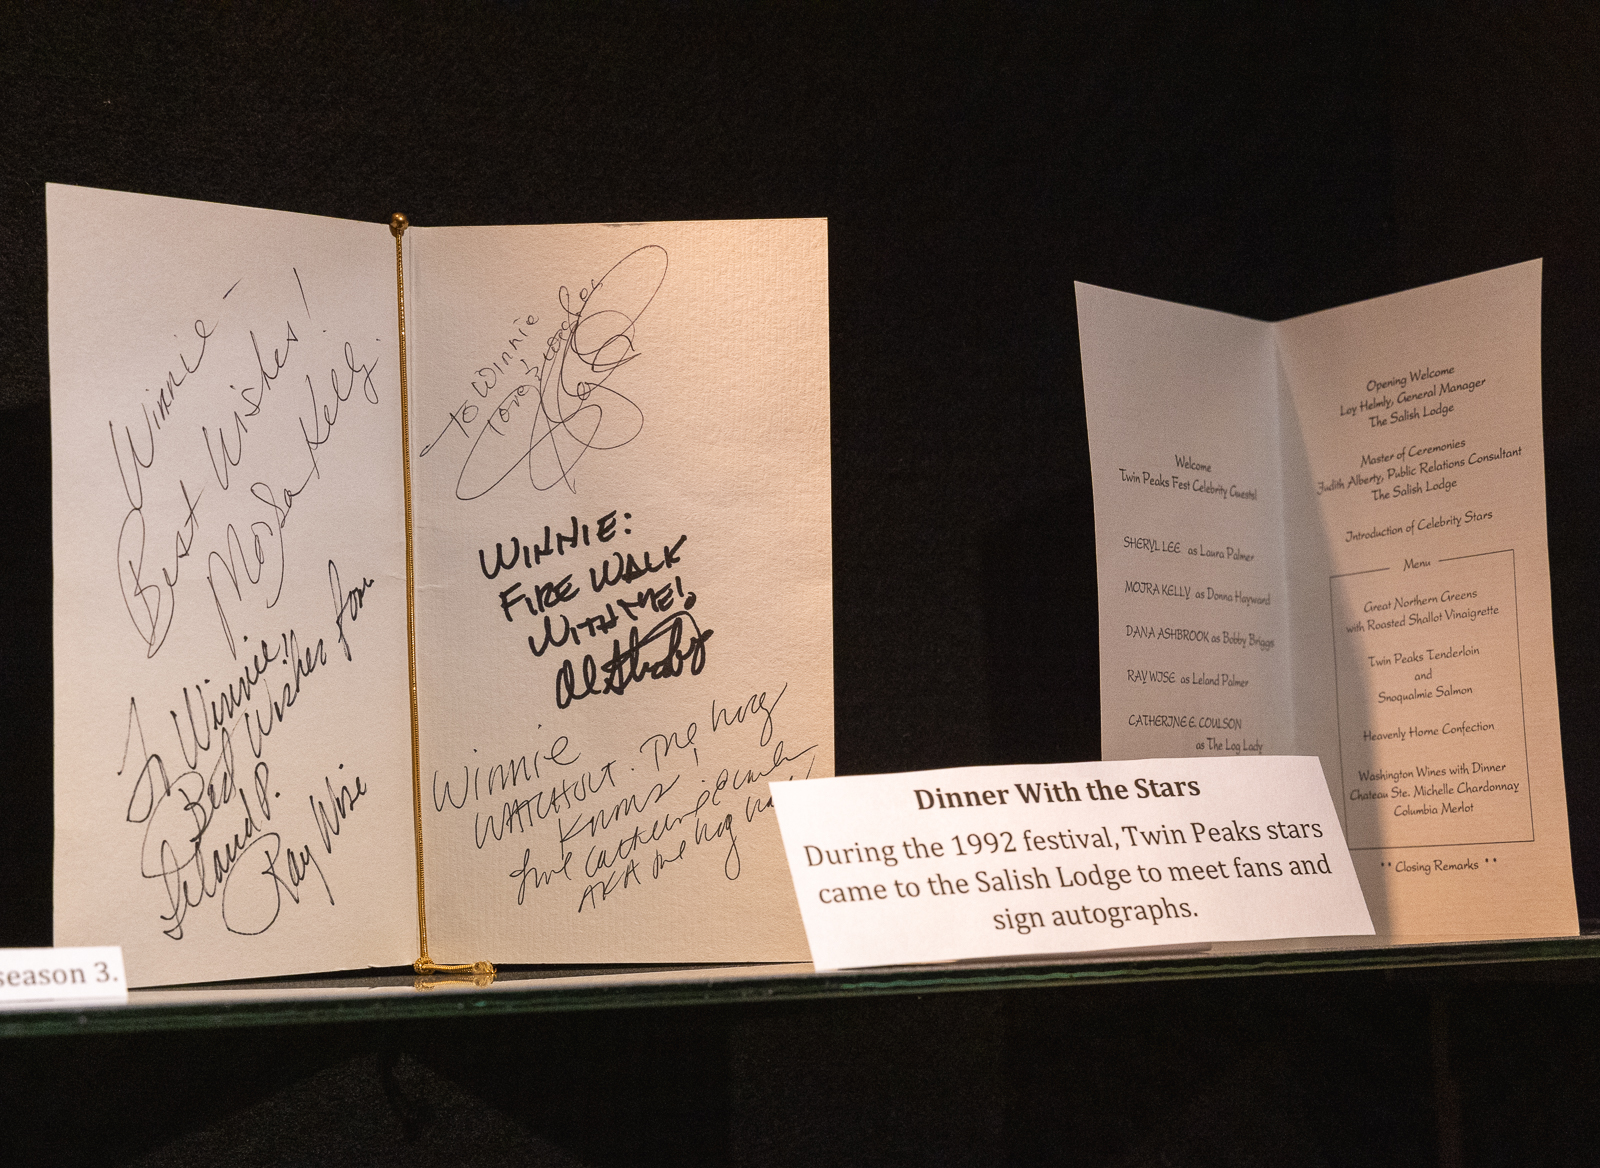 Winnie –
Best Wishes!
Moira Kelly.
To Winnie,
Best Wishes from
Leland P.
Ray Wise
To Winnie
Love
WINNIE:
FIRE WALK
WITH ME!
Al Strobel
Winnie
WATCHOUT. The log
Knows!
love Catherine E Coulson
AKA the log
season 3.
Dinner With the Stars
During the 1992 festival, Twin Peaks stars
came to the Salish Lodge to meet fans and
sign autographs.
Welcome
Twin Peaks Fest Celebrity Guests!
SHERYL LEE as Laura Palmer
MOIRA KELLY as Donna Hayward
DANA ASHBROOK as Bobby Briggs
RAY WISE as Leland Palmer
CATHERINE E. COULSON
as The Log Lady
Opening Welcome
Loy Helmly, General Manager
The Salish Lodge
Master of Ceremonies
Judith Alberty, Public Relations Consultant
The Salish Lodge
Introduction of Celebrity Stars
Menu
Great Northern Greens
with Roasted Shallot Vinaigrette
Twin Peaks Tenderloin
and
Snoqualmie Salmon
Heavenly Horne Confection
Washington Wines with Dinner
Chateau Ste. Michelle Chardonnay
Columbia Merlot
•• Closing Remarks ••